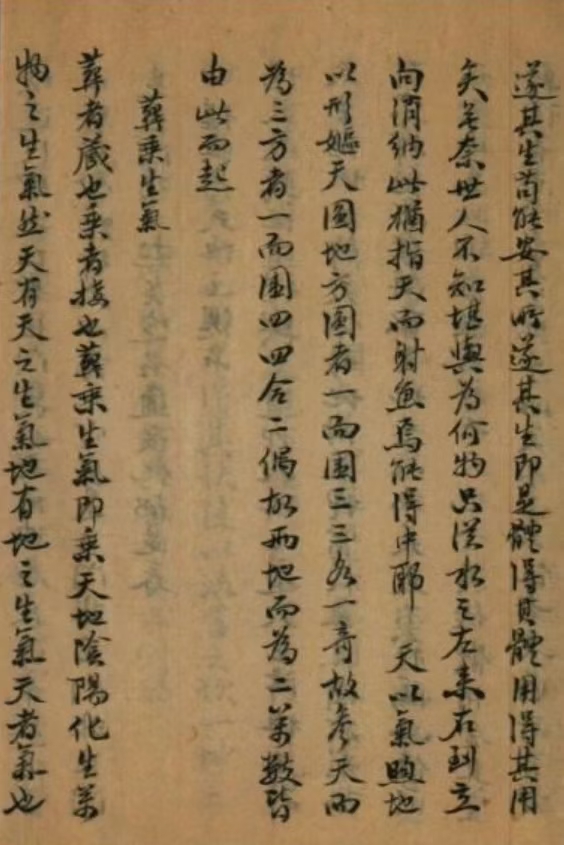 遂其生苟能安其所遂其生即是體得其體用得其用
矣無奈世人不知堪輿為何物只從水之左來右到立
向消納此猶指天而射魚焉能得中耶 天以氣煦地
以形嫗天圓地方圓者一而圍三三各一奇故參天而
為三方者一而圍四四合二偶故兩地而為二萬數皆
由此而起
葬乘生氣
葬者藏也乘者接也葬乘生氣即乘天地陰陽化生萬
物之生氣然天有天之生氣地有地之生氣天者氣也